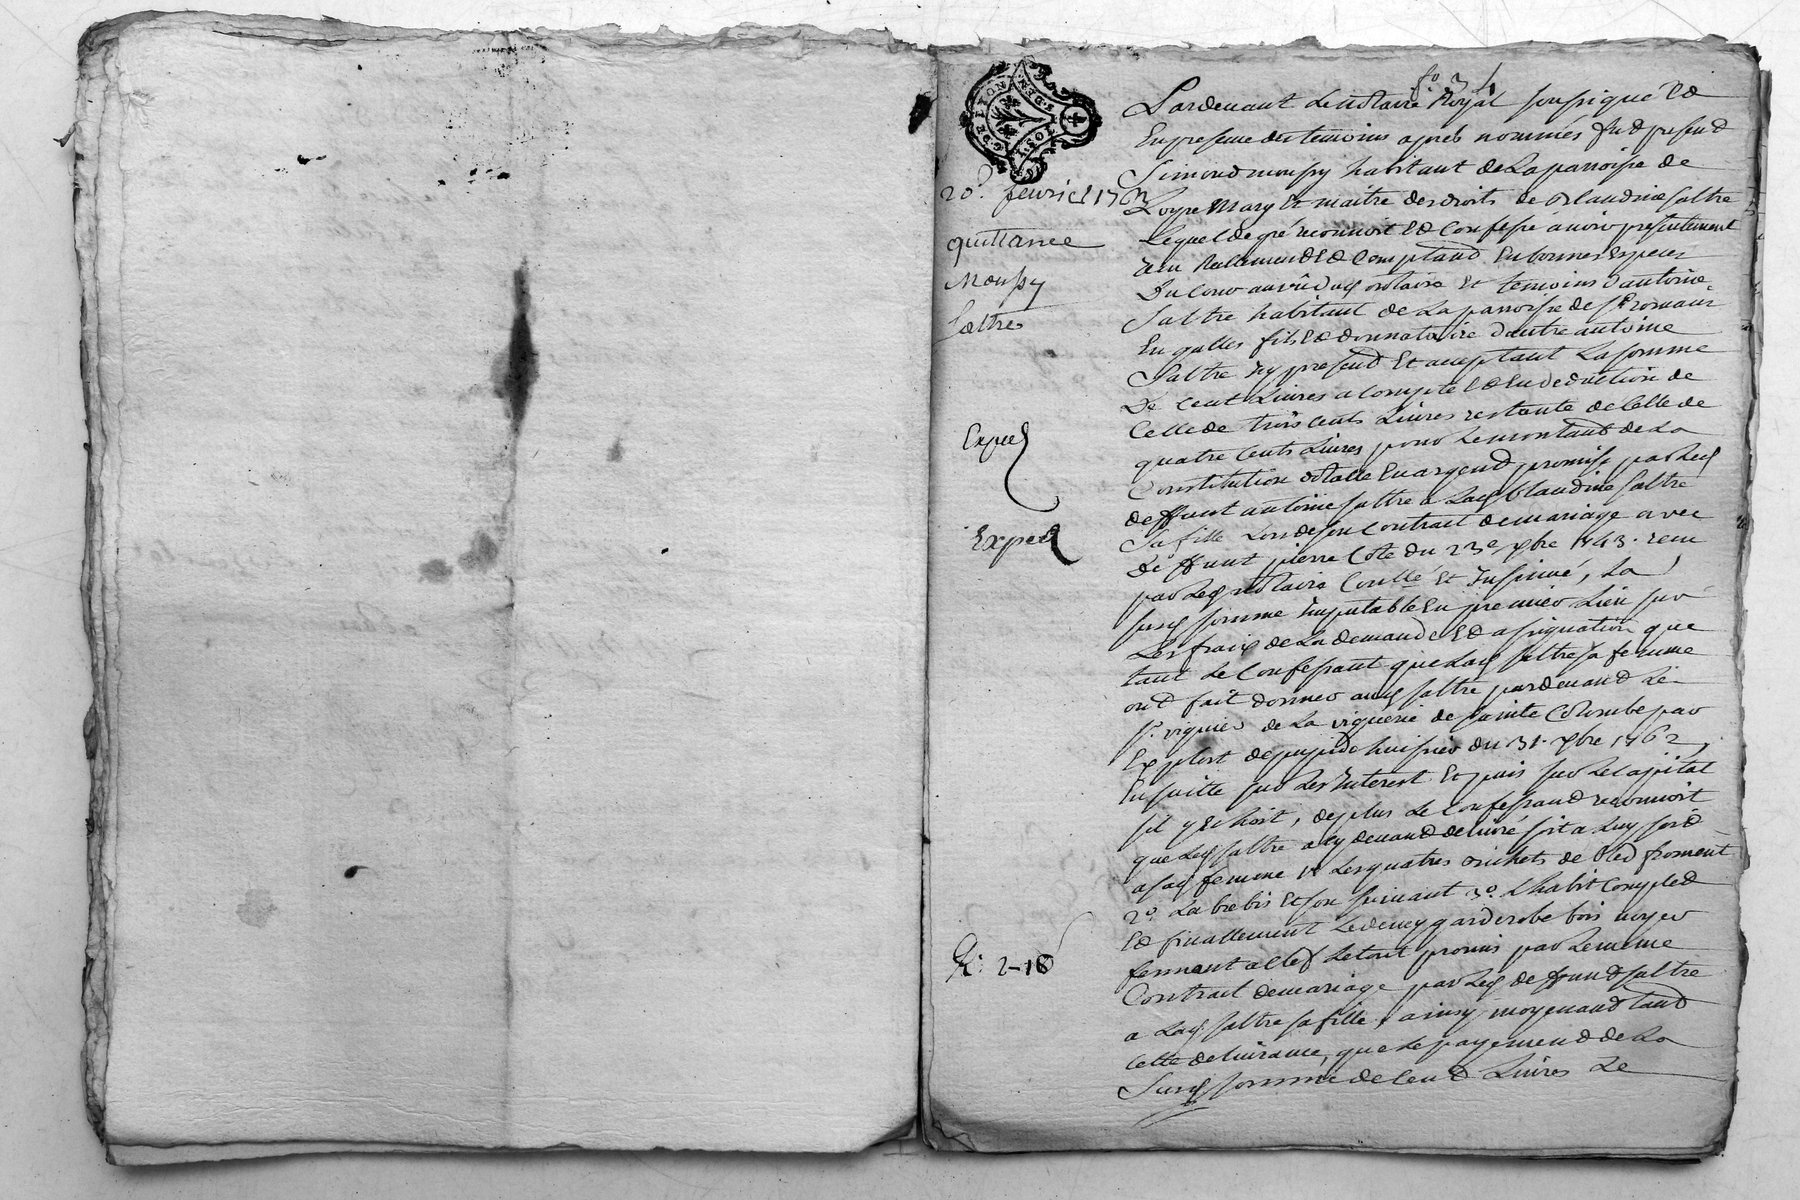 f.o 34
GDE LYON
2 SDEN
10S.8
20.e fevrier 1763
quittance
Moussy
Saltre
Exped
Exped
R: 2-18
Pardevant Le notaire Royal soussigné Et
En presence des temoins aprés nommés fut present
Simond moussy habitant de La parroisse de
Loyre Mary Et maitre des droits de Claudine Saltre
Lequel de gré reconnoit Et Confesse avoir presentement
reellement Et Comptant En bonnes Especes
Du Cour au vû dud notaire Et temoins d'antoine
Saltre habitant de La parroisse de St Romain
En galles fils Et donnataire d'autre antoine
Saltre Icy present Et acceptant La somme
De Cent Livres a Compte Et En deduction de
Celle de trois Cents Livres restante de Celle de
quatre Cents Livres pour Le montant de La
Constitution dotalle En argent promise par Led
deffunt antoine saltre a Lad Claudine saltre
Sa fille Lors de son Contract de mariage avec
Deffunt pierre Cote du 23e xbre 1743. receu
par Led notaire Conllé Et Insinué, La
susd somme Imputable En premier Lieu sur
Les fraix de La demande Et assignation que
tant Le Confessant que Lad saltre sa femme
ont fait donner aud saltre pardevant Le
sr. viguier de La viguerie de sainte Colombe par
Exploit de huissier du 31. xbre 1762
Ensuitte sur Les Interest Et puis sur Le Capital
sil y Echoit, de plus Le Confessant reconnoit
que Led saltre a cy devant delivré soit a Luy soit
a sad femme 1o Les quatres bichets de bled froment
2o. La brebis Et son suivant 3o. L'habit Complet
Et finallement Le demy garderobe bois noyer
fermant a clef Le tout promis par Le meme
Contract de mariage par Led deffunt saltre
a Lad saltre sa fille, ainsy moyenant tant
Cette delivrance, que Le payement de La
Susd somme de Cent Livres Le